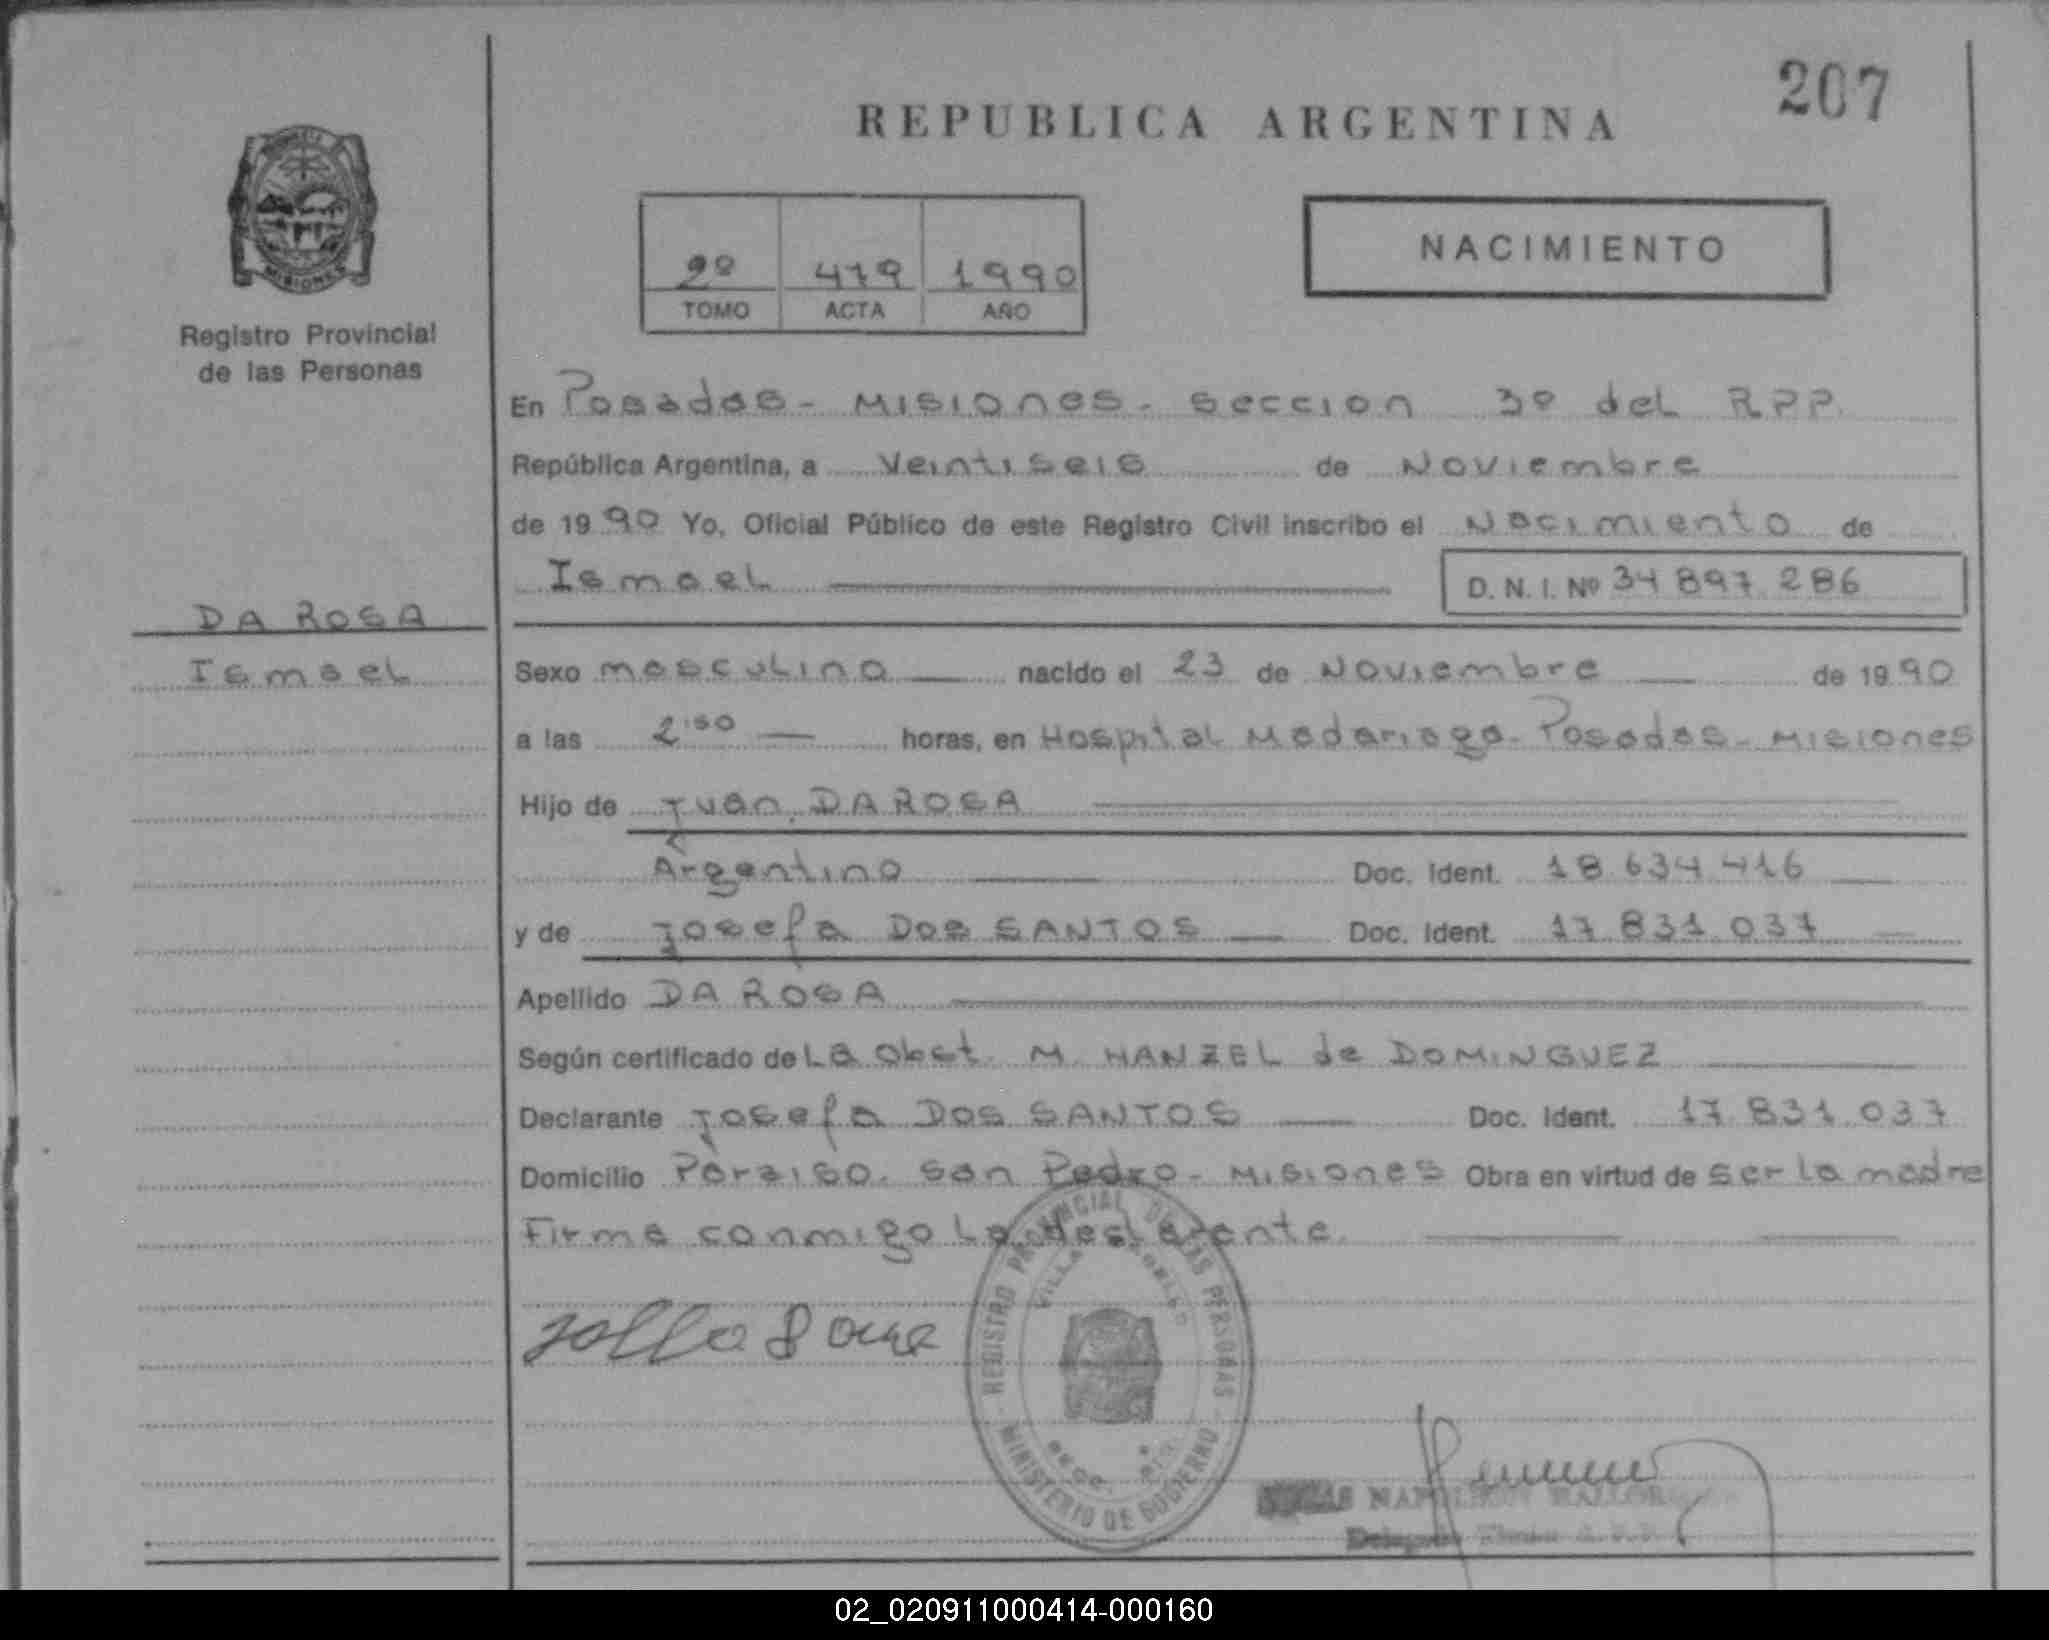 207
REPUBLICA ARGENTINA
NACIMIENTO
2º 479 1990
TOMO ACTA AÑO
MISIONES
Registro Provincial
de las Personas
En Posadas - Misiones - Seccion 3º del R.P.P.
República Argentina, a Veintiseis de Noviembre
de 1990 Yo, Oficial Público de este Registro Civil inscribo el Nacimiento de
Ismael D. N. I. Nº 34 897 286
DA ROSA
Ismael
Sexo masculino nacido el 23 de Noviembre de 1990
a las 2:50 horas, en Hospital Madariaga - Posadas - Misiones
Hijo de Juan DA ROSA
Argentino Doc. Ident. 18.634.416
y de Josefa DOS SANTOS Doc. Ident. 17.831.037
Apellido DA ROSA
Según certificado de La Obst. M. HANZEL de DOMINGUEZ
Declarante Josefa DOS SANTOS Doc. Ident. 17.831.037
Domicilio Paraiso - San Pedro - Misiones Obra en virtud de ser la madre
Firma conmigo La declarante.
REGISTRO PROVINCIAL DE LAS PERSONAS
MINISTERIO DE GOBIERNO
VILLA
NAPOLEON
02_020911000414-000160